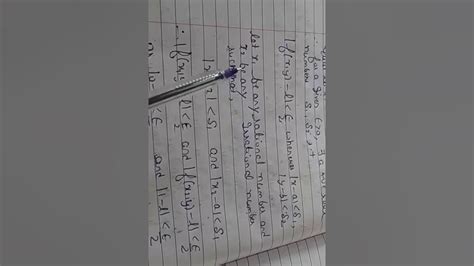 for a given ε>0, ∃ a
numbers δ₁, δ₂, s.t.
|f(x,y) - l| < ε/2 whenever |x-a| < δ₁,
|y-b| < δ₂
let x₁ be any rational number and
x₂ be any irrational number
such that,
|x₁-a| < δ₁ and |x₂-a| < δ₁
∴ |f(x₁,y) - l| < ε/2 and |f(x₂,y) - l| < ε/2
|0-l| < ε/2 and |1-l| < ε/2